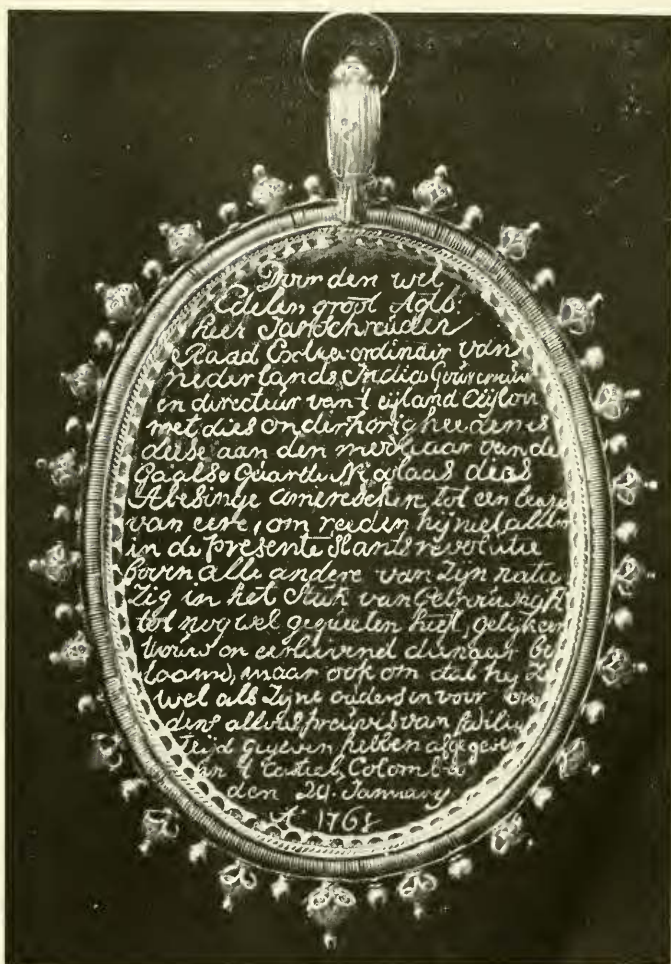 Door den wel
Edelen groot Agtb:
heer Jan Schreuder
Raad Extra ordinair van
nederlands, India Gouverneur
en directeur van 't eijland Ceijlon
met dies onderhorigheeden is
deese aan den modliaar van de
Gaalse Quarde Nicolaas dias
Abesinge amereschere, tot een
van eere, om reeden hij niet alleen
in de presente slants revolutie
boven alle andere van Zijn natie
Zig in het Stuk van getrouwigh
tot nog wel gequeeten heeft, gelijk een
trouw en eerlievend dienaar be
taamd, maar ook om dat hij Zo
wel als Zijne ouders in voor
dens alloms preuvis van
Teijd gegeven hebben afgegeven
in 't Casteel, Colombo
den 29. January
A° 1761